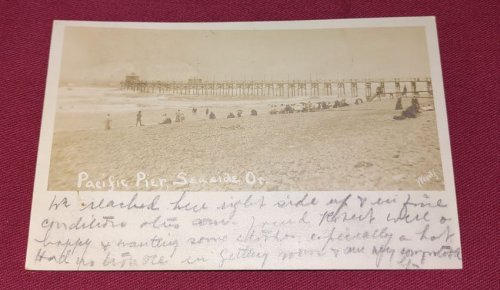 Pacific Pier Seaside Or.
We reached here right side up & in fine
condition found Robert well &
happy & wanting some clothes, especially a hat
Had no trouble in getting rooms & are comfortable